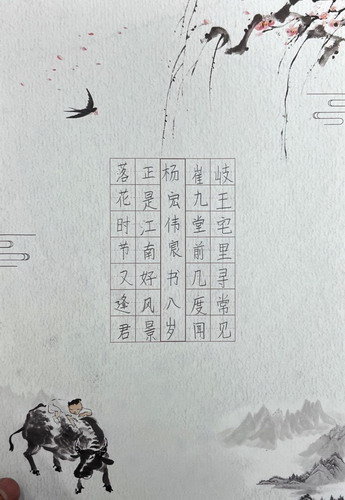 岐王宅里寻常见
崔九堂前几度闻
杨宏伟宸书八岁
正是江南好风景
落花时节又逢君